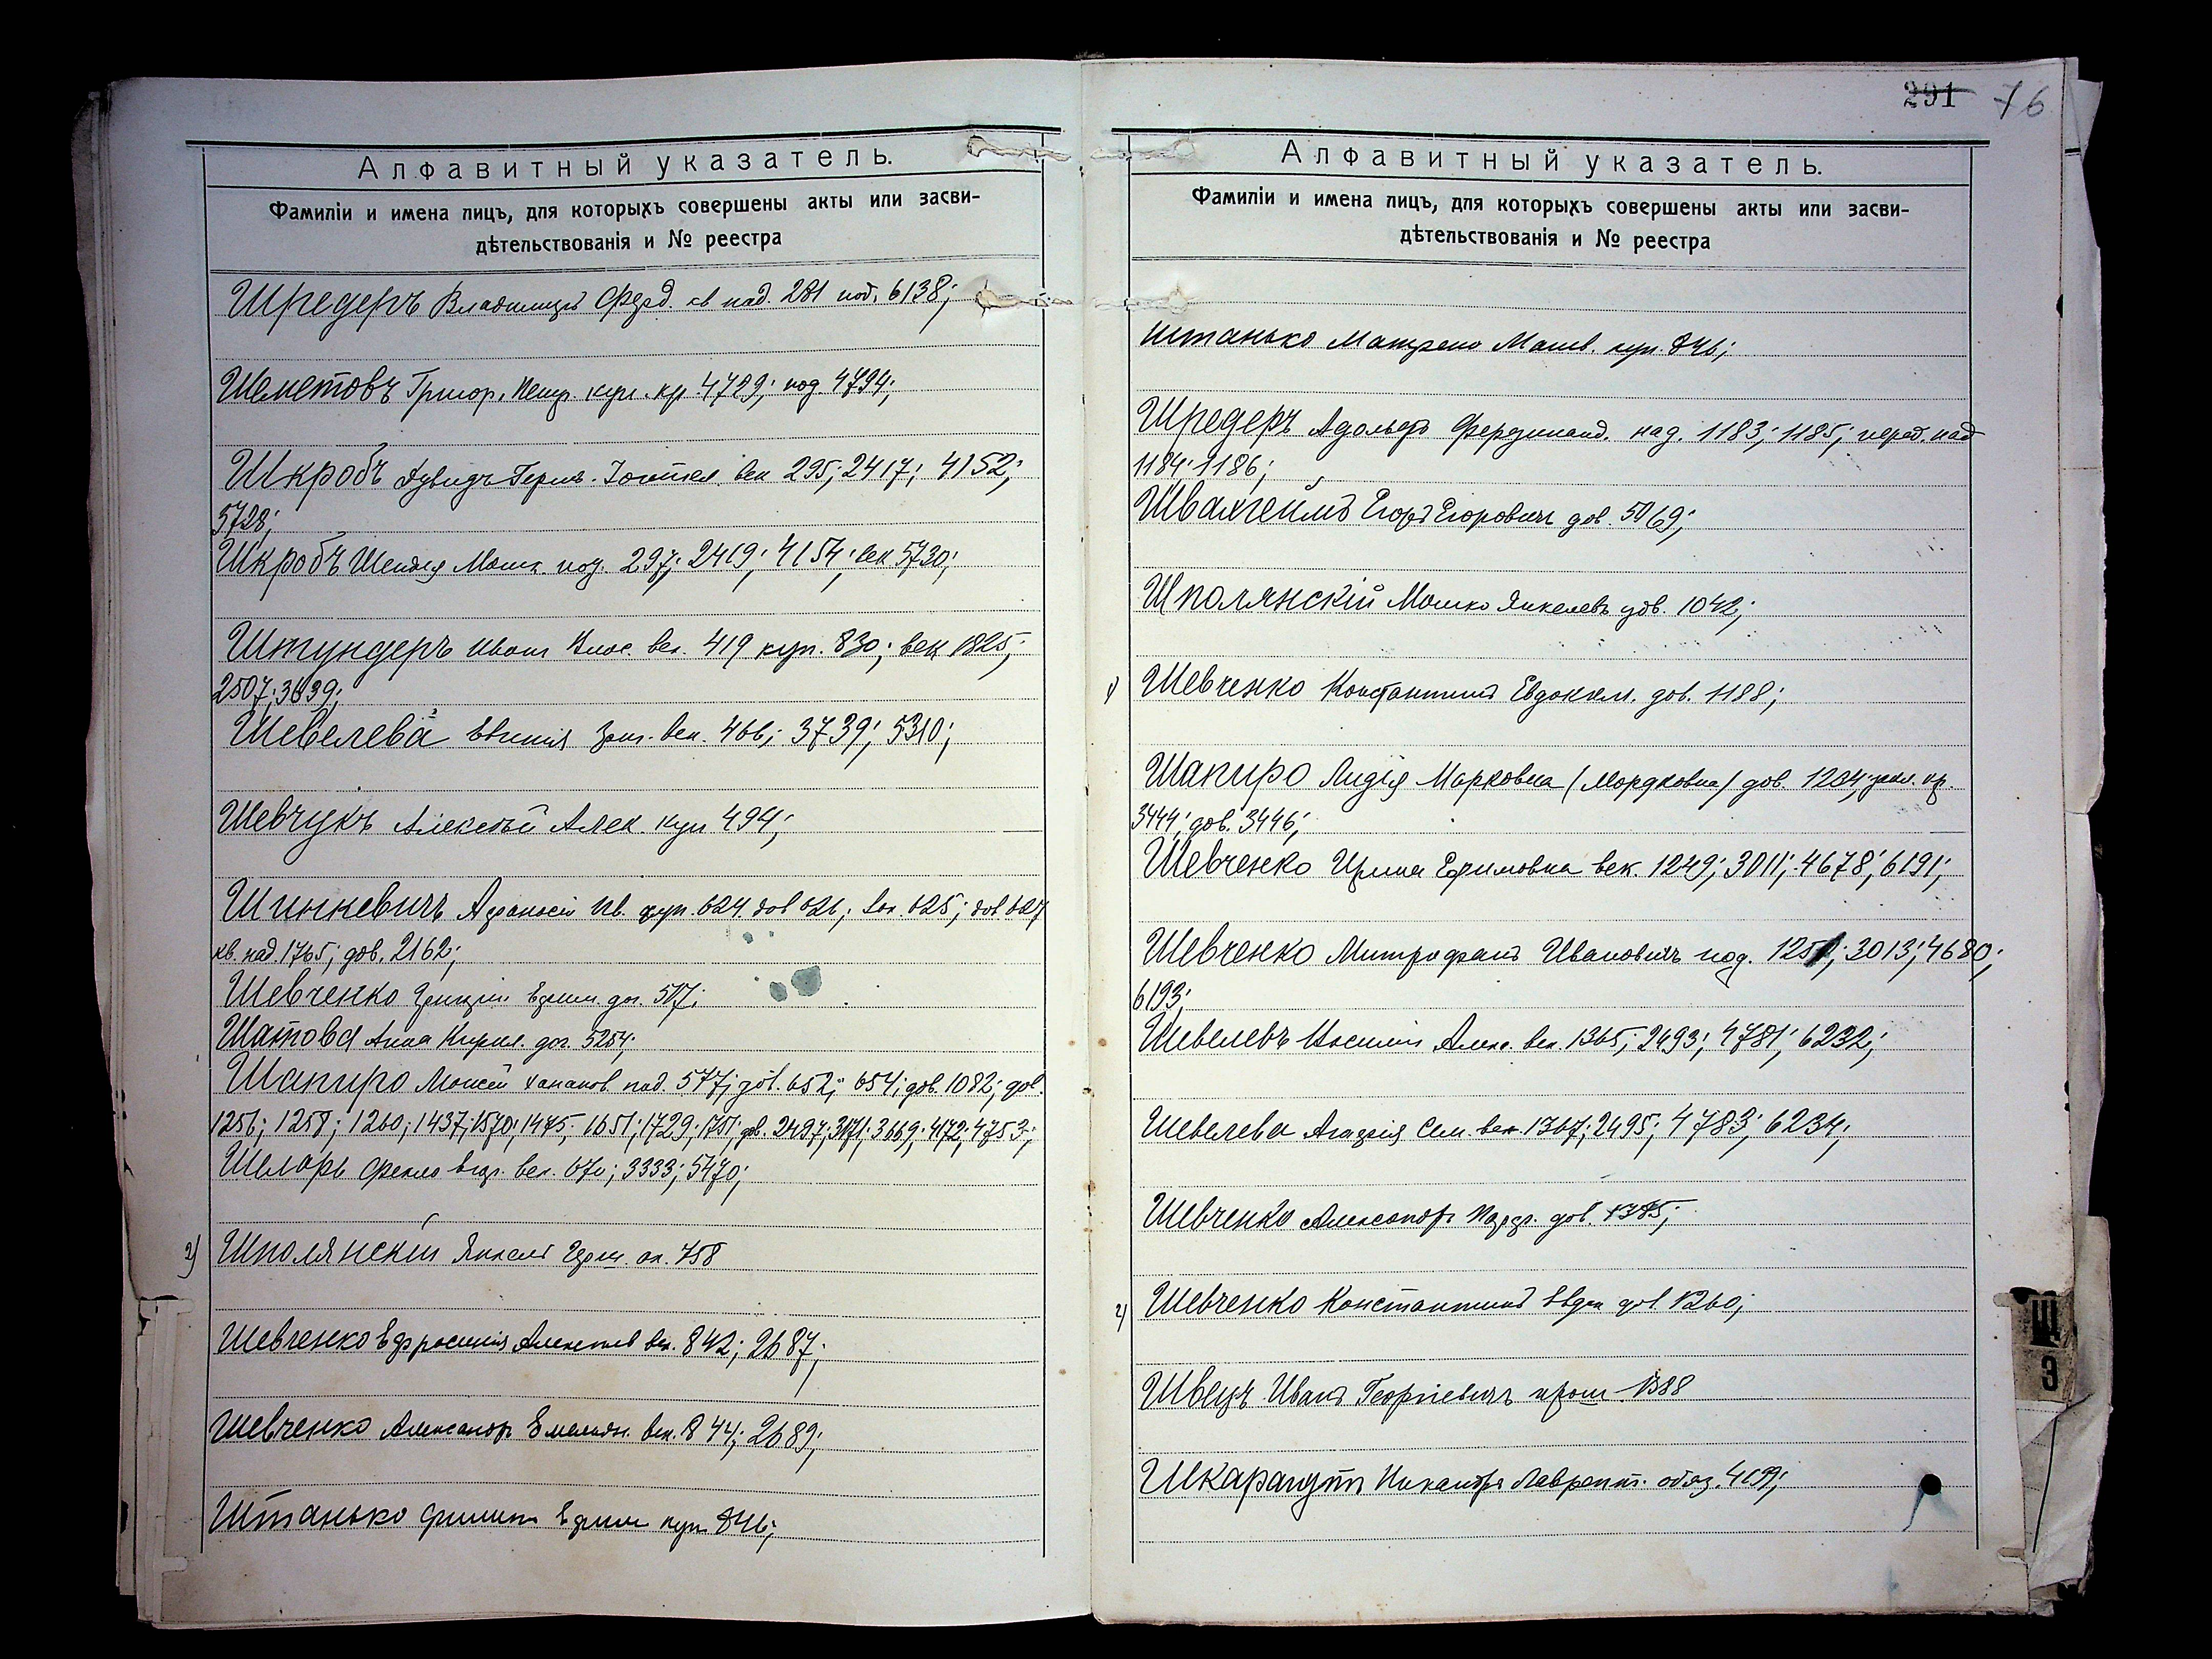 Алфавитный указатель.
Фамиліи и имена лицъ, для которыхъ совершены акты или засви-
дѣтельствованія и № реестра
Шредеръ Владимиръ Ферд. св над. 281 под. 6138;
Шеметовъ Григор. Петр. куп. кр. 4729; под. 4794;
Шкробъ век 295; 2417; 4152;
5728;
Шкробъ Шендля Мошк. под. 297; 2419; 4154; век 5730;
Штундеръ Иван век. 419 куп. 830; век 1825;
2507; 3639;
Шевелева век. 466; 3739; 5310;
Шевчукъ Алексѣй Алек. куп 494;
Шинкевичъ Афанасій Ив. куп. 624. дов 626; 625; дов 627
кв. над. 1765; дов. 2162;
Шевченко дог. 507;
Шатова Анна Кирил. дог. 5254;
Шапиро Моисей Хананов. над. 577; дов. 652; 654; дов. 1082; дов.
1256; 1258; 1260; 1437; 1570; 1475; 1651; 1729; 1751; дов. 2497; 3171; 3669; 4172; 4753;
Шпларь Фекла век. 670; 3333; 5470;
2) Шполянскій Янкель Герш. 758
Шевченко Ефросинія Алексѣев век. 842; 2687;
Шевченко Александръ Емельян. век. 844; 2689;
Штанько Филип Ефим куп 846;
291 76
Алфавитный указатель.
Фамиліи и имена лицъ, для которыхъ совершены акты или засви-
дѣтельствованія и № реестра
Штанько Матрена Матв. куп. 846;
Шредеръ Адольфъ Фердинанд. над. 1183; 1185; перед. над
1184; 1186;
Швахгеймъ Егоръ Егоровичъ дов. 5069;
Шполянскій Мошко Янкелевъ дов. 1042;
1) Шевченко Константинъ Евдоким. дов. 1188;
Шапиро Лидія Марковна (Мордковна) дов. 1204; пр.
3444; дов. 3446;
Шевченко Ирина Ефимовна век. 1249; 3011; 4678; 6191;
Шевченко Митрофанъ Ивановичъ под. 1251; 3013; 4680;
6193;
Шевелевъ Алекс. век. 1365; 2493; 4781; 6232;
Шевелева Агафія Сем. век. 1367; 2495; 4783; 6234;
Шевченко Александръ дов. 1385;
2) Шевченко Константинъ Евдок дов 1260;
Швецъ Иванъ Георгіевичъ 1388
Шкарагутъ Никаноръ Лаврент. обяз. 4099;
Ш
З